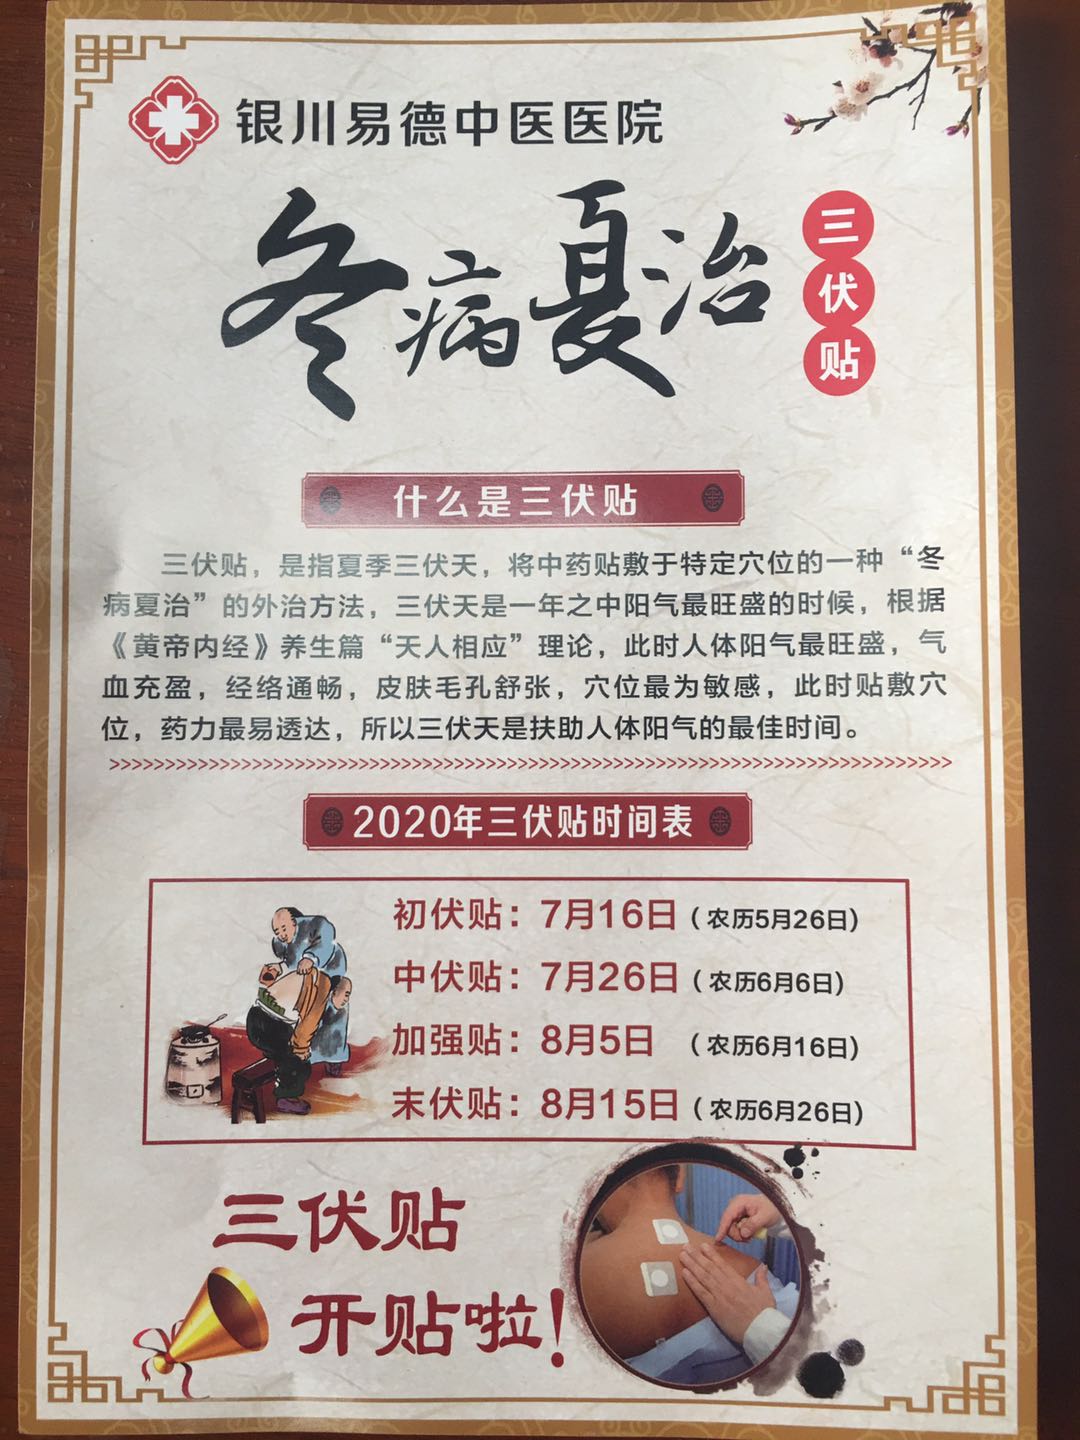 银川易德中医医院
冬病夏治
三伏贴
什么是三伏贴
三伏贴，是指夏季三伏天，将中药贴敷于特定穴位的一种“冬
病夏治”的外治方法，三伏天是一年之中阳气最旺盛的时候，根据
《黄帝内经》养生篇“天人相应”理论，此时人体阳气最旺盛，气
血充盈，经络通畅，皮肤毛孔舒张，穴位最为敏感，此时贴敷穴
位，药力最易透达，所以三伏天是扶助人体阳气的最佳时间。
2020年三伏贴时间表
初伏贴：7月16日（农历5月26日)
中伏贴：7月26日（农历6月6日)
加强贴：8月5日（农历6月16日)
末伏贴：8月15日（农历6月26日)
三伏贴
开贴啦！